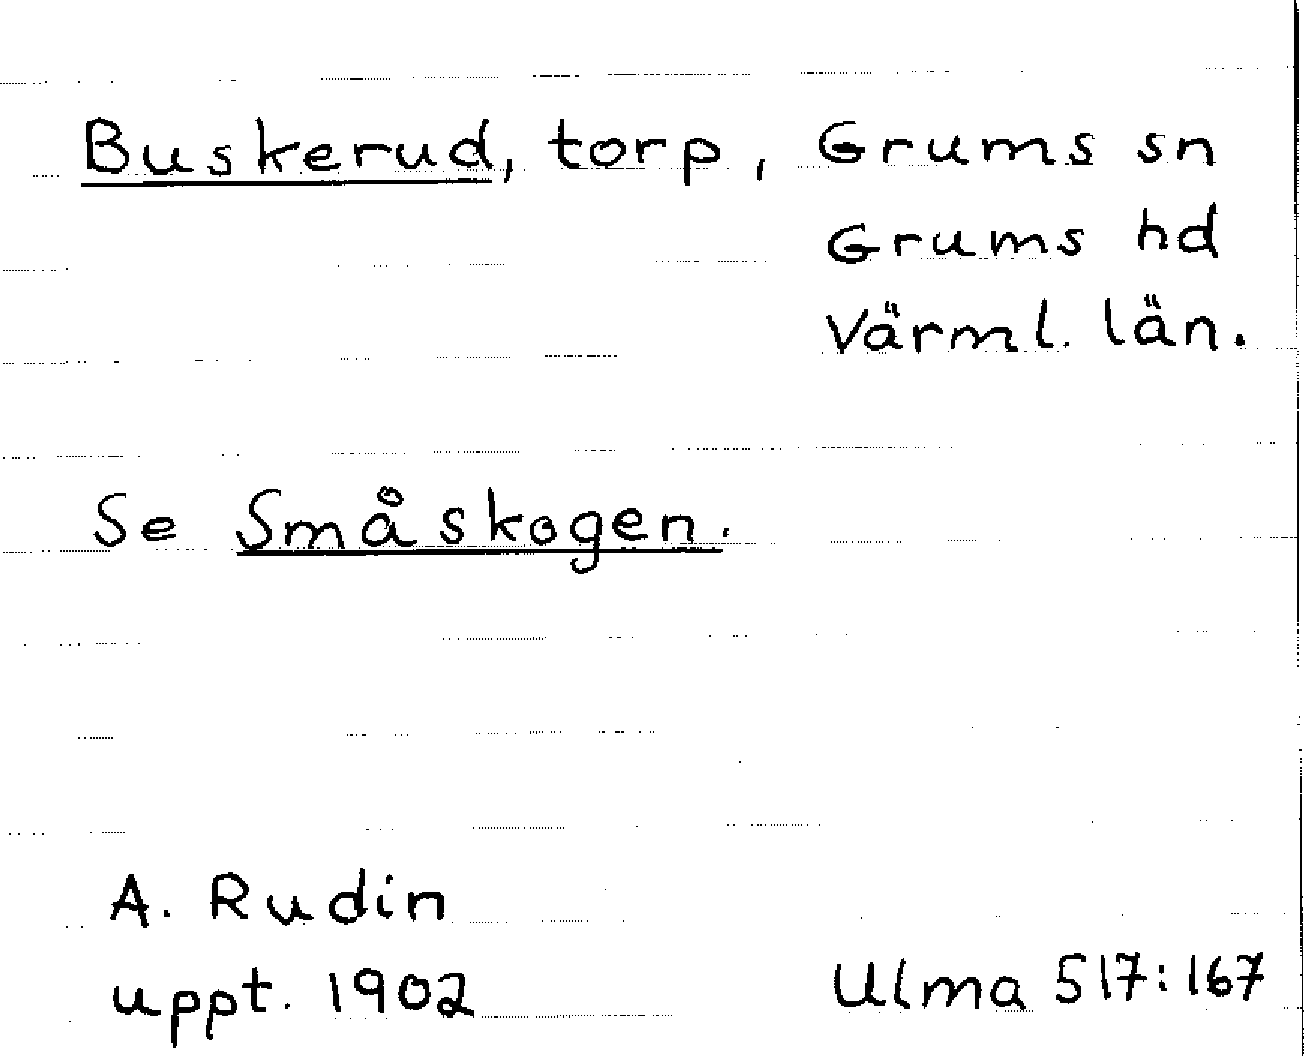 Buskerud, torp, Grums sn
Grums hd
Värml. län.
Se Småskogen.
A. Rudin
uppt. 1902
Ulma 517:167